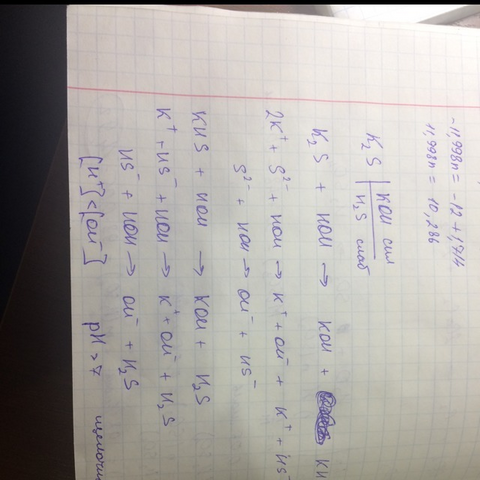 -11,998n = -12 + 1,714
11,998n = 10,286
K₂S | KOH сил
H₂S слаб
K₂S + HOH → KOH + KH
2K⁺ + S²⁻ + HOH → K⁺ + OH⁻ + K⁺ + HS⁻
S²⁻ + HOH → OH⁻ + HS⁻
KHS + HOH → KOH + H₂S
K⁺ + HS⁻ + HOH → K⁺ + OH⁻ + H₂S
HS⁻ + HOH → OH⁻ + H₂S
[H⁺] < [OH⁻] pH > 7